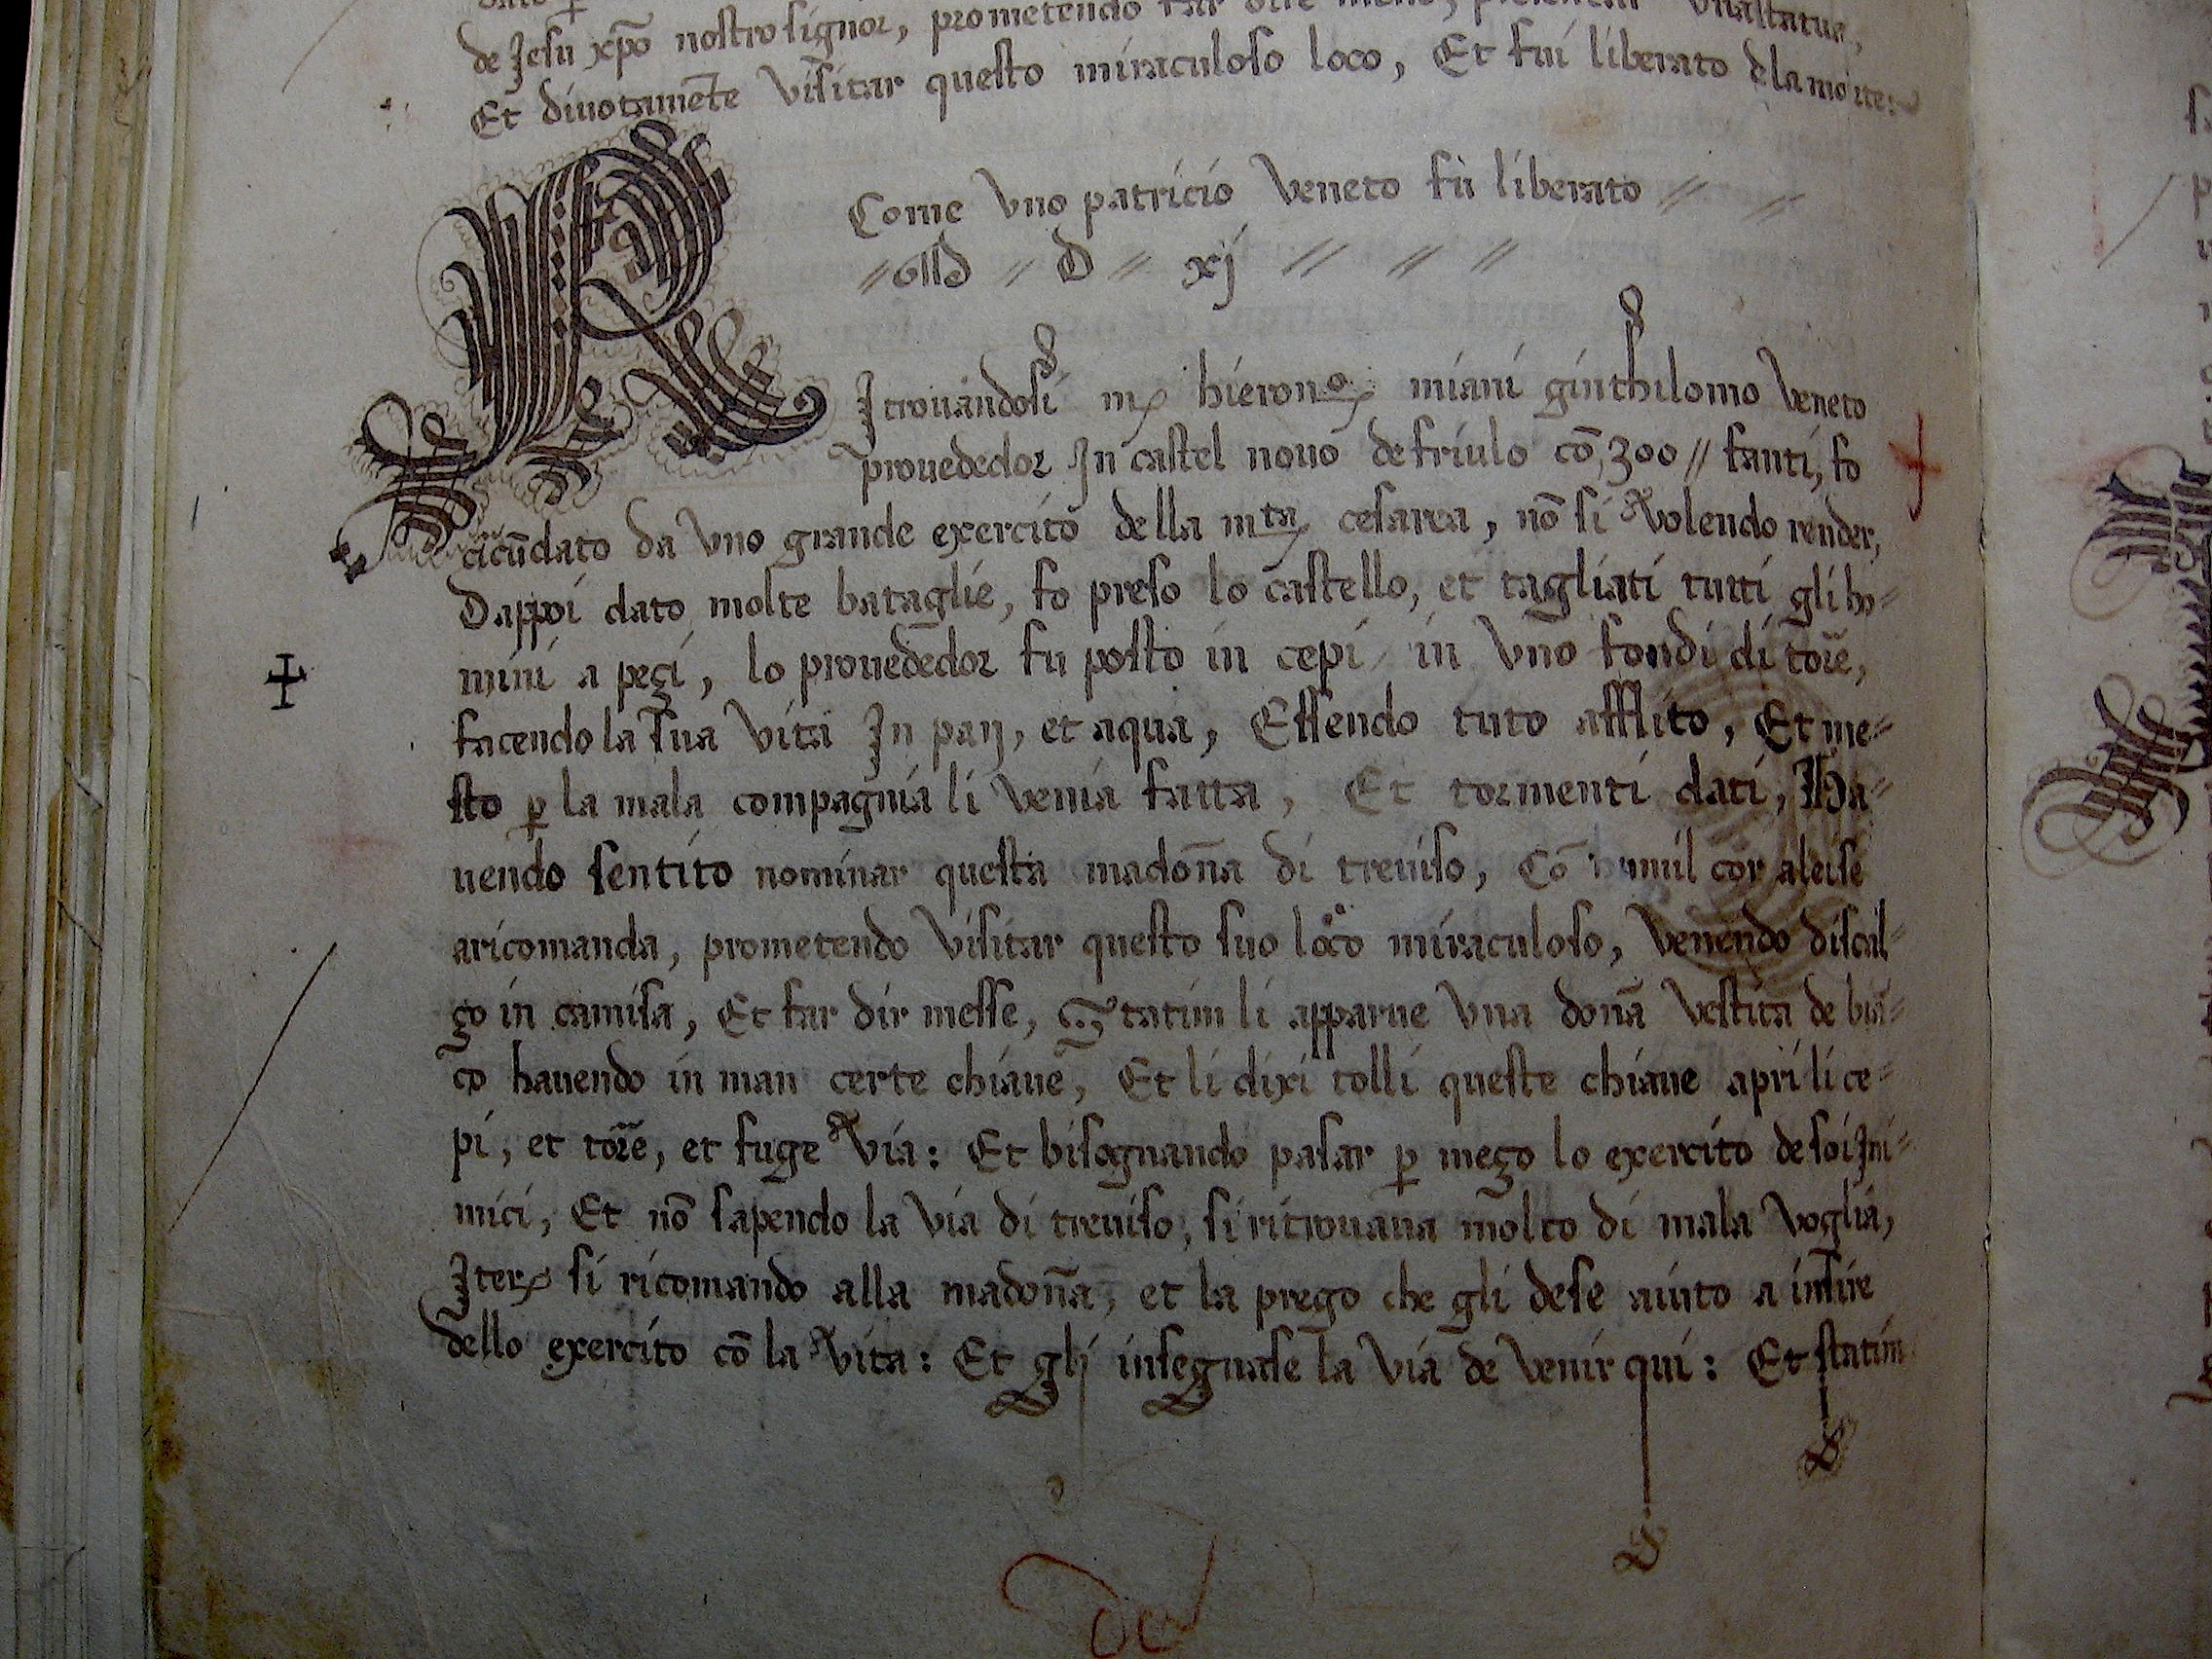 de Jesu xp̄o nostro signor, prometendo far dire messe, una statua,
Et diuotamēte visitar questo miraculoso loco, Et fui liberato dla morte:
Come vno patricio veneto fu liberato // //
// M // D // xj // // //
R
Itrouandosi mꝫ hieronoꝫ miani ginthilomo veneto
prouededor In castel nouo de friulo cō 300 // fanti, fo
cicūdato da vno grande exercito della mtaꝫ cesarea, nō si volendo render,
Dappoi dato molte bataglie, fo preso lo castello, et tagliati tutti gli ho=
mini a peçi, lo prouededor fu posto in cepi in vno fondi di tore,
facendo la sua vita In pan, et aqua, Essendo tuto afflito, Et me=
sto p̱ la mala compagnia li venia fatta, Et tormenti dati, Ha=
uendo sentito nominar questa madoña di treuiso, Cō humil cor aleise
aricomanda, prometendo visitar questo suo loco miraculoso, venendo discal=
ço in camisa, Et far dir messe, Statim li apparue vna doña vestita de biā=
co hauendo in man certe chiaue, Et li dixi tolli queste chiaue apri li ce=
pi, et tore, et fuge via: Et bisognando pasar p̱ meço lo exercito de soi Ini=
mici, Et nō sapendo la via di treuiso, si ritrouaua molto di mala voglia,
Iterꝫ si ricomando alla madoña, et la prego che gli dese aiuto a insire
dello exercito cō la vita: Et gli insegnase la via de venir qui: Et statim